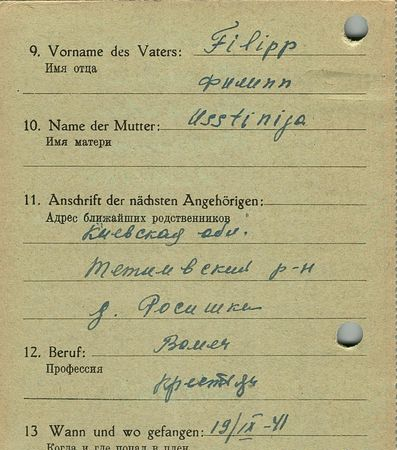 9. Vorname des Vaters: Filipp
Имя отца
Филипп
10. Name der Mutter: Usstinija
Имя матери
11. Anschrift der nächsten Angehörigen:
Адрес ближайших родственников
Киевская обл.
Тетиивский р-н
д. Росишка
12. Beruf:
Профессия
13 Wann und wo gefangen: 19/IX-41
Когда и где попал в плен